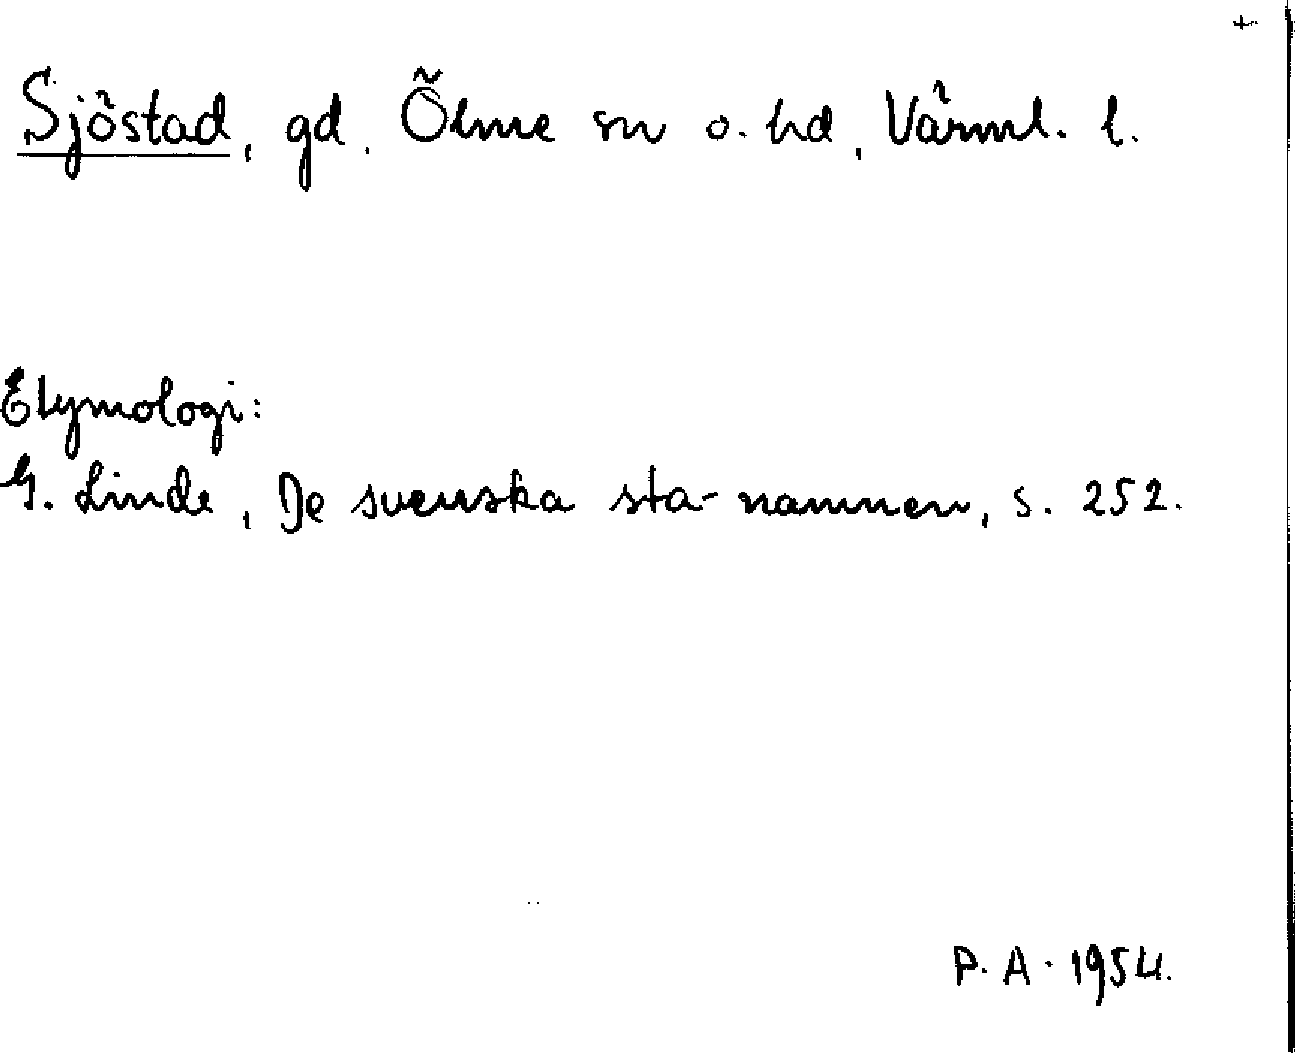 Sjöstad, gd, Ölme sn o. hd, Värml. l.
Etymologi:
G. Linde, De svenska sta-namnen, s. 252.
P. A. 1954.